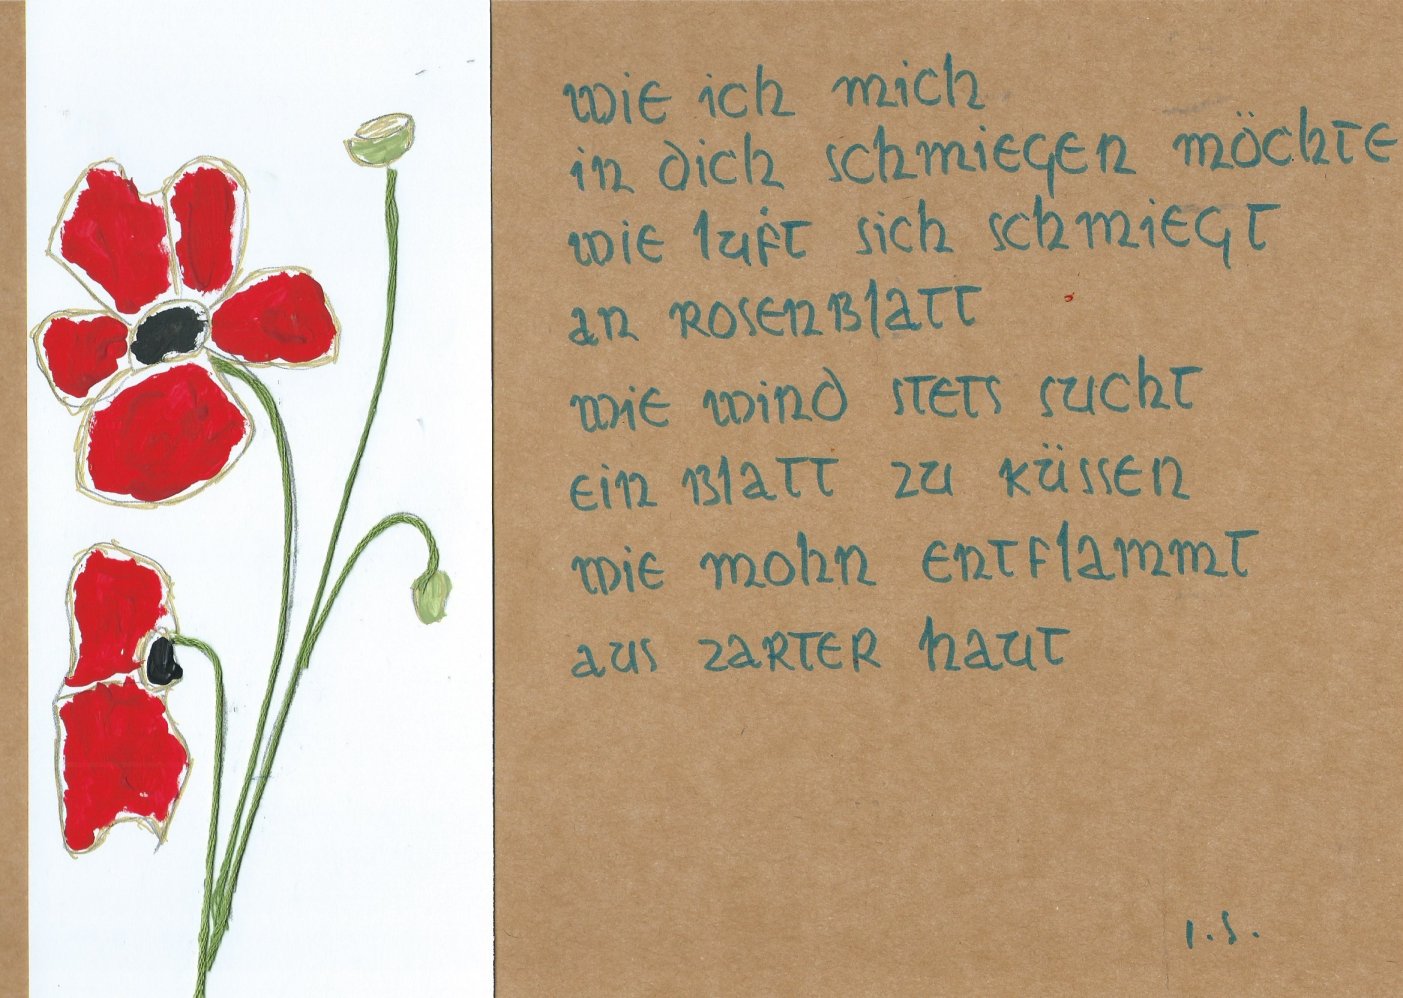 wie ich mich
in dich schmiegen möchte
wie luft sich schmiegt
an rosenblatt
wie wind stets sucht
ein blatt zu küssen
wie mohn entflammt
aus zarter haut
i.s.